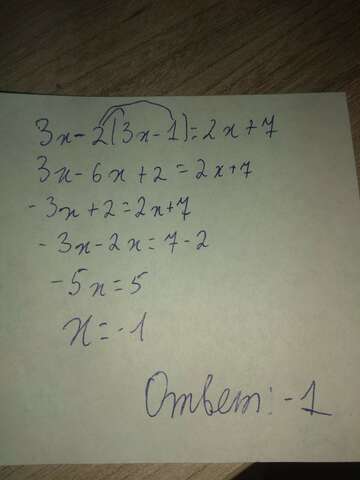 3x-2(3x-1)=2x+7
3x-6x+2=2x+7
-3x+2=2x+7
-3x-2x=7-2
-5x=5
x=-1
Ответ: -1